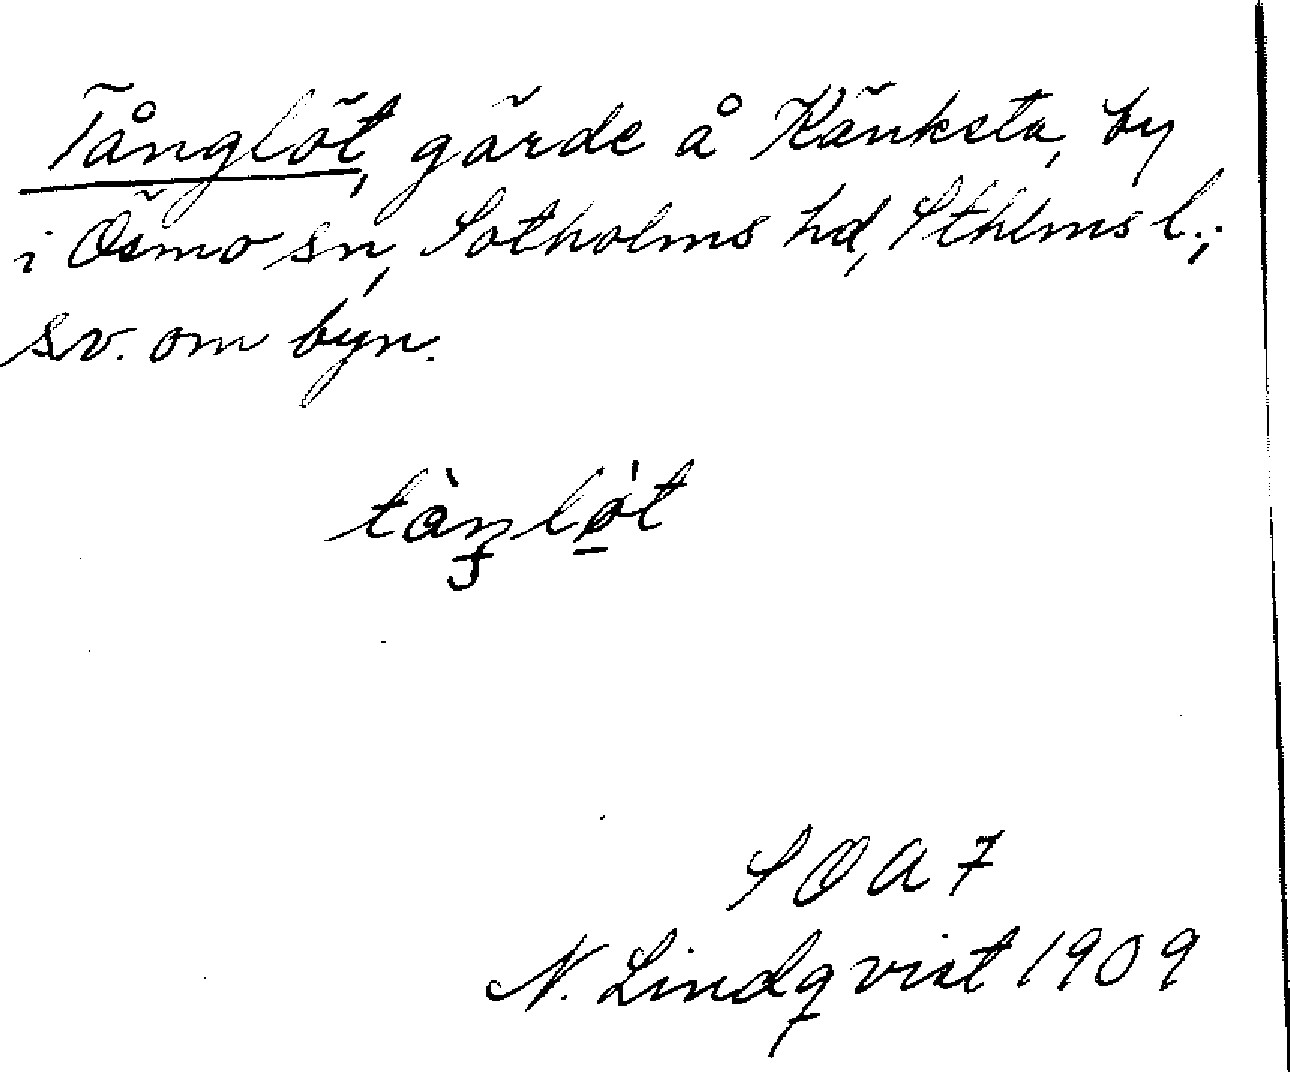 Tånglöt, gärde å Känksta, by
i Ösmo sn, Sotholms hd, Sthlms l.;
sv. om byn.
SOA 7
N. Lindqvist 1909